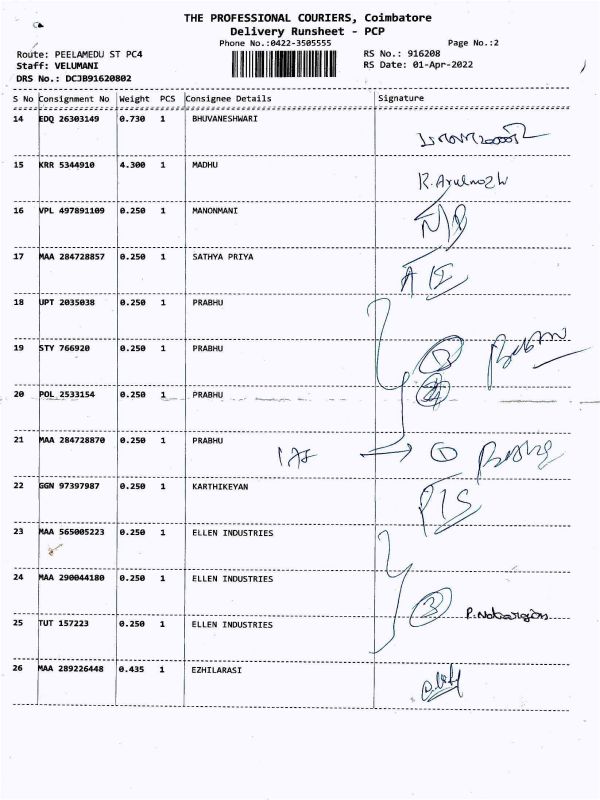 THE PROFESSIONAL COURIERS, Coimbatore
Delivery Runsheet - PCP
Phone No.:0422-3505555
Page No.:2
Route: PEELAMEDU ST PC4
RS No.: 916208
Staff: VELUMANI
RS Date: 01-Apr-2022
DRS No.: DCJB91620802
S No Consignment No Weight PCS Consignee Details Signature
14 EDQ 26303149 0.730 1 BHUVANESHWARI
15 KRR 5344910 4.300 1 MADHU
R.Arulmozhi
16 VPL 497891109 0.250 1 MANONMANI
17 MAA 284728857 0.250 1 SATHYA PRIYA
18 UPT 2035038 0.250 1 PRABHU
19 STY 766920 0.250 1 PRABHU
20 POL 2533154 0.250 1 PRABHU
21 MAA 284728870 0.250 1 PRABHU
1
22 GGN 97397987 0.250 1 KARTHIKEYAN
23 MAA 565005223 0.250 1 ELLEN INDUSTRIES
24 MAA 290044180 0.250 1 ELLEN INDUSTRIES
3
25 TUT 157223 0.250 1 ELLEN INDUSTRIES
26 MAA 289226448 0.435 1 EZHILARASI